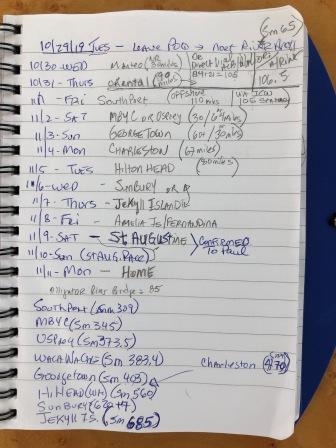 (Sm 65)
10/29/19 TUES - LEAVE POCO → MEET RIVER
10/30 WED - Manteo
89+21 = 105
106.5
10/31 - THURS oriental
11/1 - FRI SouthPort (OFFSHORE 110 miles) VIA ICW 105
11/2 - SAT MBYC OR OSPREY (30/64 miles)
11/3 - Sun GEORGETOWN (60+/30 miles)
11/4 - Mon CHARLESTON (67 miles)
11/5 - TUES HILTON HEAD (80 miles)
11/6 - WED - SUNBURY OR
11/7 - Thurs - JEKYLL ISLAND
11/8 - Fri - AMELIA IS/FERNANDINA
11/9 - SAT - ST AUGUSTINE } CONFIRMED To Paul
11/10 - Sun (ST AUG. RACE)
11/11 - Mon - HOME
Alligator River Bridge = 85
SouthPort (Sm 309)
MBYC (Sm 345)
OSPREY (Sm 373.5)
WACCA WACHE (Sm 383.4)
Georgetown (Sm 403)
Charleston (Sm 470)
HiHEAD (WH) (Sm 560)
SUNBURY
JEKYLL IS. (Sm 685)